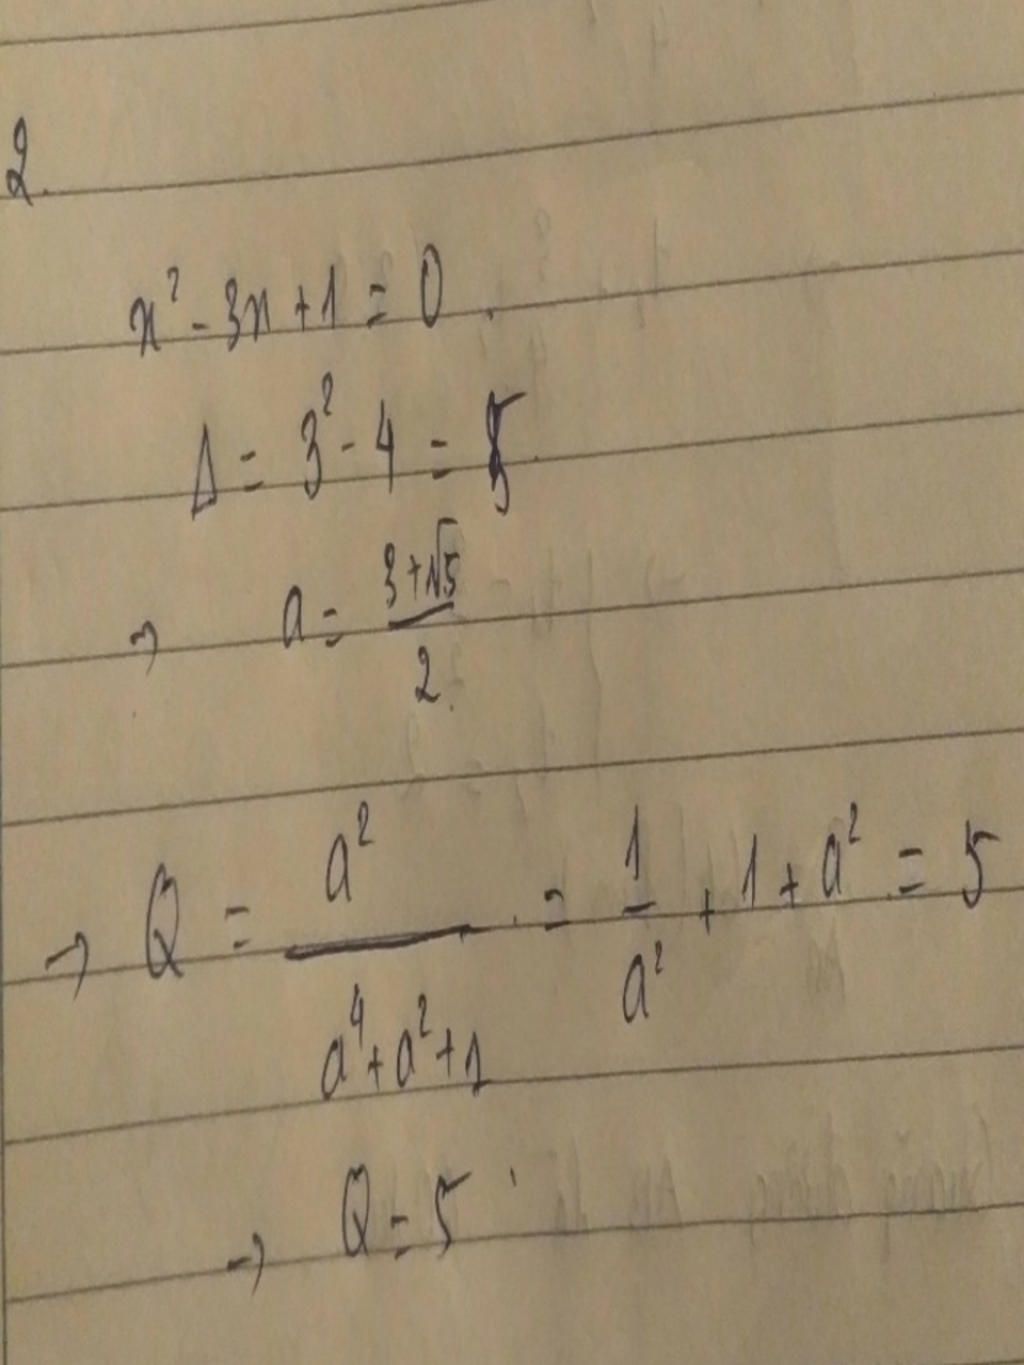 2.
x² - 3x + 1 = 0.
Δ = 3² - 4 = 5
→ a = (3+√5)/2.
→ Q = a²/(a⁴+a²+1) = 1/a² + 1 + a² = 5
→ Q = 5